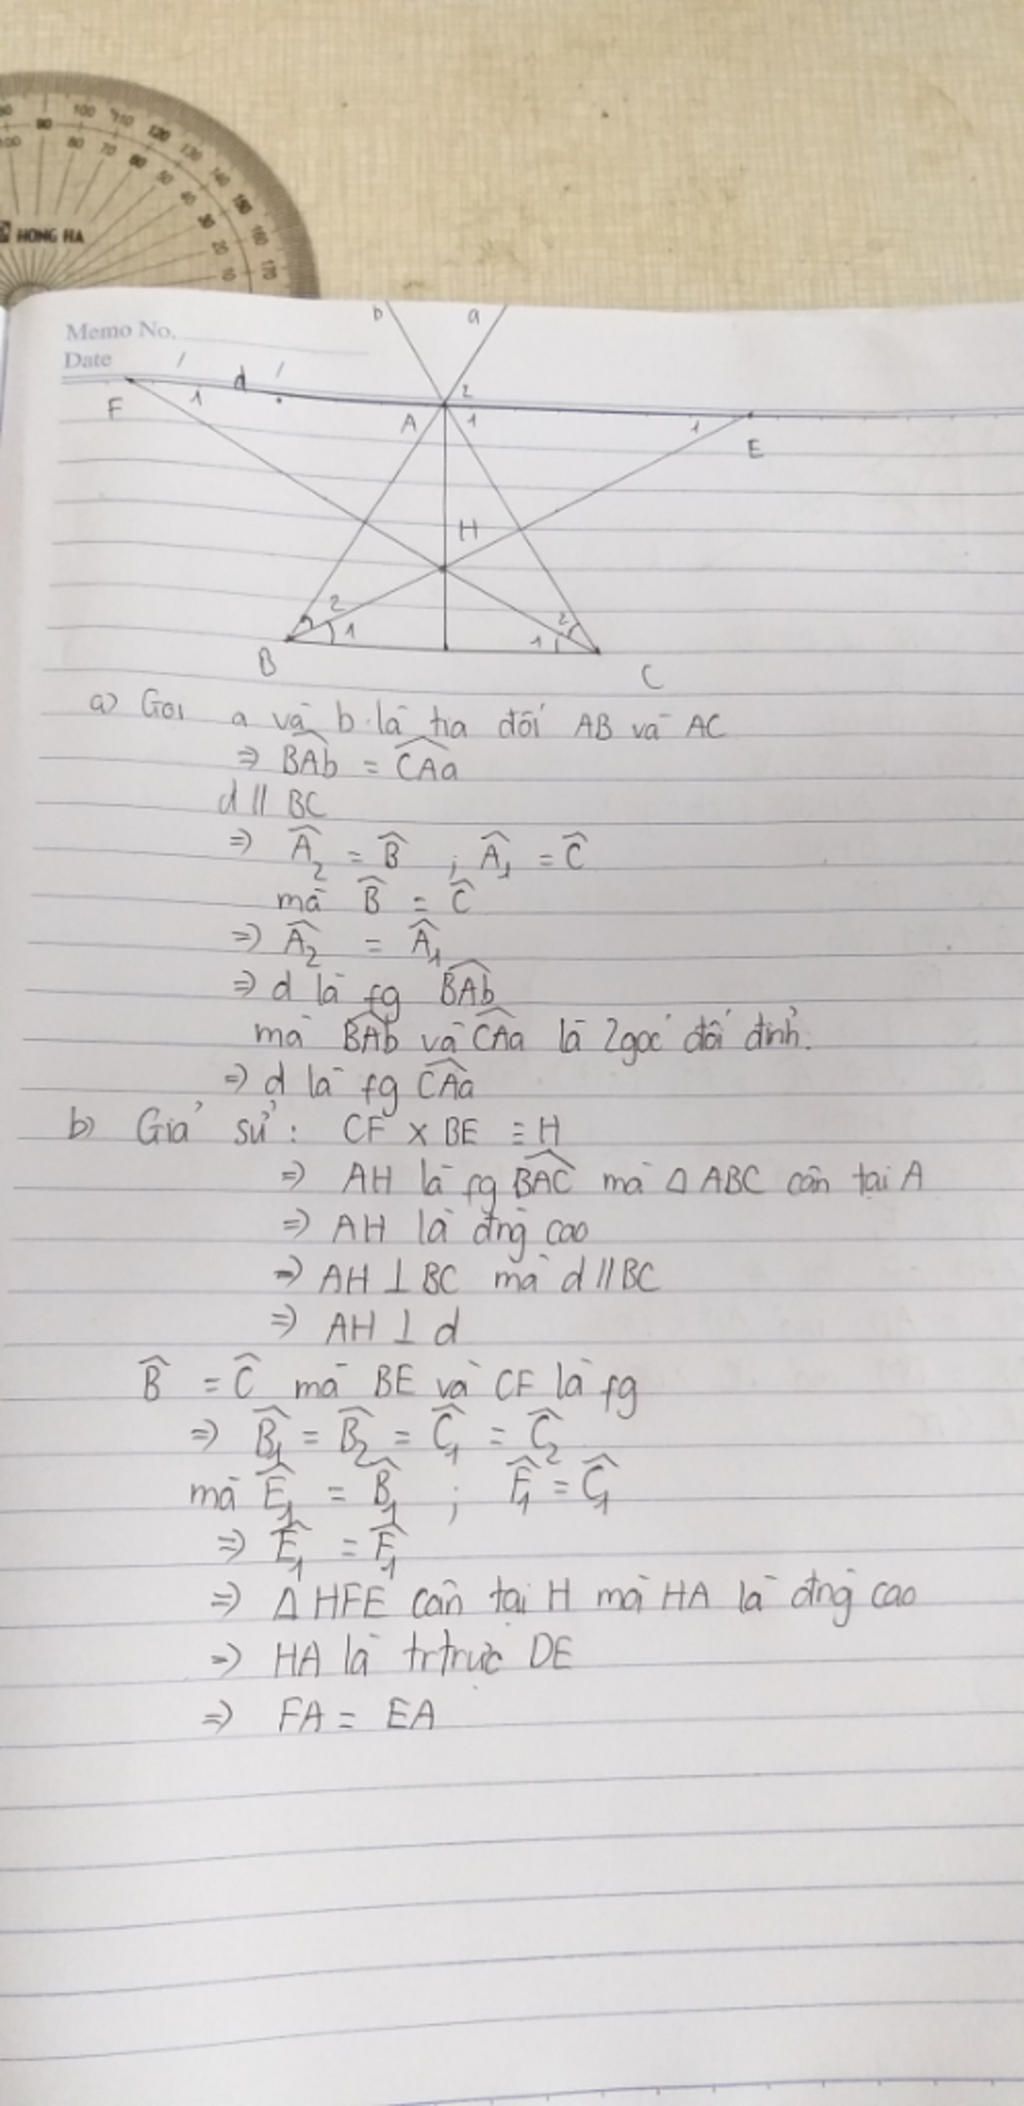 100 110 120 130 140 150 160 170
90
100 80 70 60 50 40 30 20 10
HONG HA
Memo No.
Date / /
b a
d
F 1 A 2 1 1 E
H
2 1 1 2
B C
a) Gọi a và b là tia đối AB và AC
⇒ \widehat{BAb} = \widehat{CAa}
d // BC
⇒ \widehat{A}₂ = \widehat{B} ; \widehat{A}₁ = \widehat{C}
mà \widehat{B} = \widehat{C}
⇒ \widehat{A}₂ = \widehat{A}₁
⇒ d là fg \widehat{BAb}
mà \widehat{BAb} và \widehat{CAa} là 2 góc đối đỉnh.
⇒ d là fg \widehat{CAa}
b) Giả sử: CF x BE ≡ H
⇒ AH là fg \widehat{BAC} mà Δ ABC cân tại A
⇒ AH là đng cao
⇒ AH ⊥ BC mà d // BC
⇒ AH ⊥ d
\widehat{B} = \widehat{C} mà BE và CF là fg
⇒ \widehat{B₁} = \widehat{B₂} = \widehat{C₁} = \widehat{C₂}
mà \widehat{E₁} = \widehat{B₁} ; \widehat{F₁} = \widehat{C₁}
⇒ \widehat{E₁} = \widehat{F₁}
⇒ Δ HFE cân tại H mà HA là đng cao
⇒ HA là trtrực DE
⇒ FA = EA